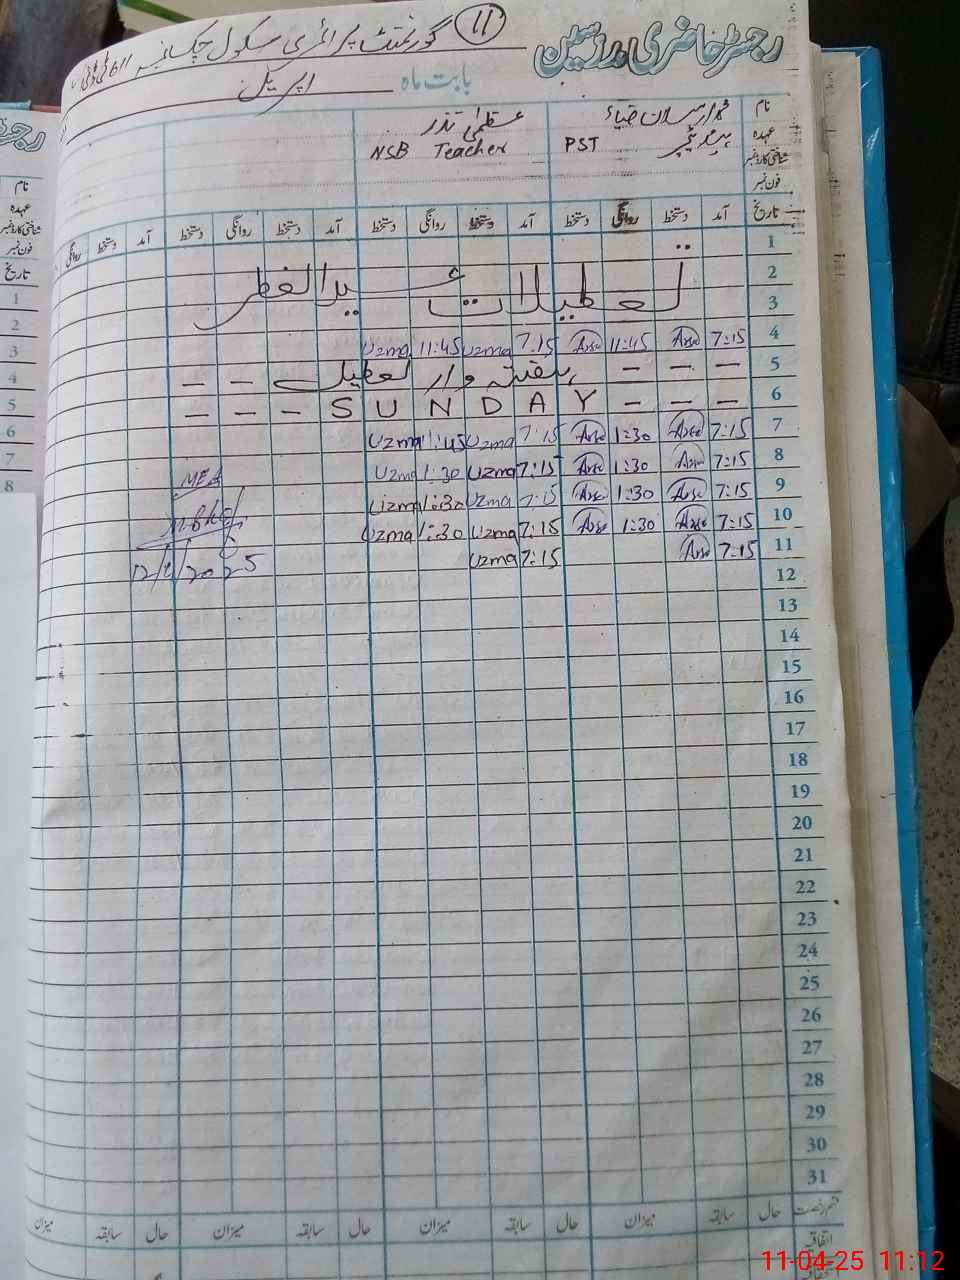 رجسٹر حاضری مدرسین
(11) گورنمنٹ پرائمری سکول چک نمبر 611
بابت ماہ اپریل
نام محمد ارسلان ضیاء عظمیٰ نذر
عہدہ ہیڈ ٹیچر PST NSB Teacher
شناختی کارڈ نمبر
فون نمبر
تاریخ آمد دستخط روانگی دستخط آمد دستخط روانگی دستخط آمد دستخط روانگی دستخط آمد دستخط روانگی
1
2 تعطیلات عیدالفطر
3
4 7:15 11:45 7:15 Uzma 11:45 Uzma
5 — — — ہفتہ وار تعطیل — —
6 — — — S U N D A Y — — —
7 7:15 1:30 7:15 Uzma 1:45 Uzma
8 7:15 1:30 7:15 Uzma 1:30 Uzma
9 7:15 1:30 7:15 Uzma 1:30 Uzma
10 7:15 1:30 7:15 Uzma 1:30 Uzma
11 7:15 7:15 Uzma
MEA
12/4/2025
12
13
14
15
16
17
18
19
20
21
22
23
24
25
26
27
28
29
30
31
قسم رخصت حال سابقہ میزان حال سابقہ میزان حال سابقہ میزان حال سابقہ میزان
اتفاقیہ
رجسٹر
نام
عہدہ
شناختی کارڈ نمبر
فون نمبر
تاریخ
1
2
3
4
5
6
7
8
11-04-25 11:12